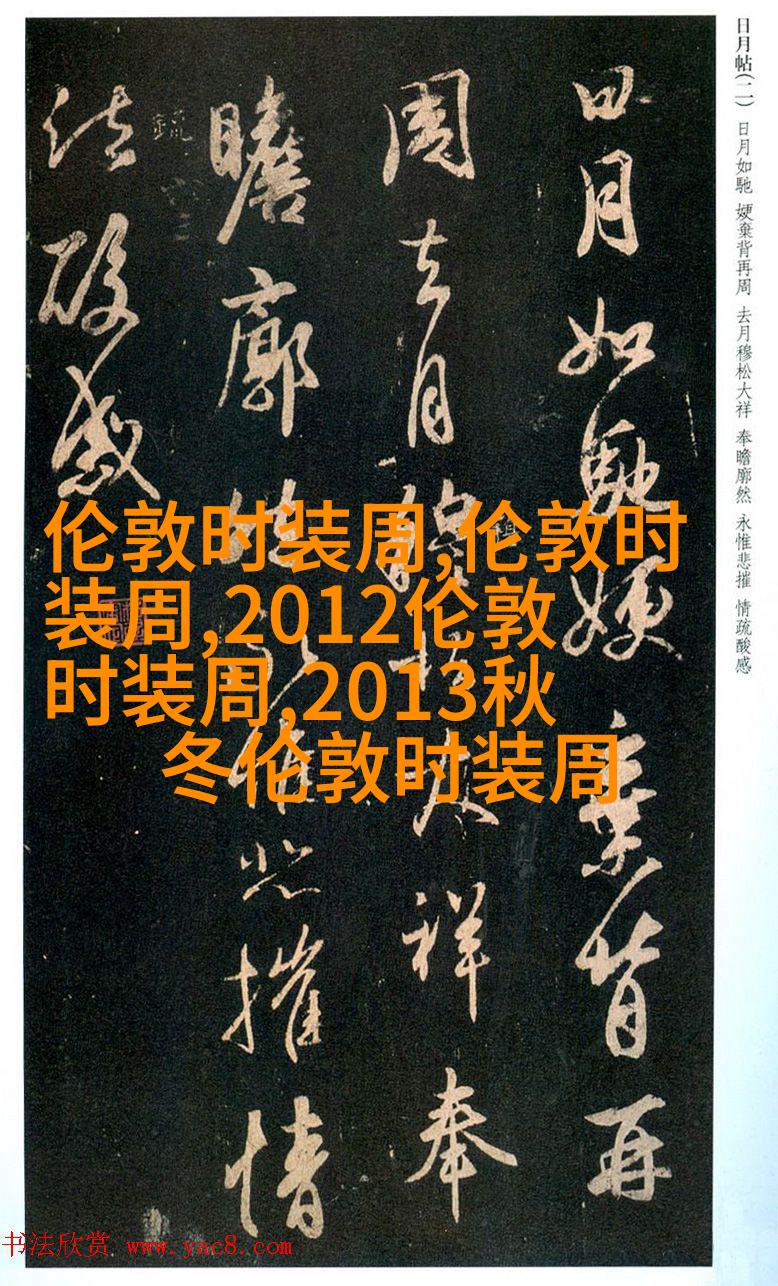 日月帖(二) 日月如馳 娷棄背再周 去月穆松大祥 奉瞻廓然 永惟悲摧 情疏酸感
日月如馳娷棄背再
周去月穆松大祥奉
瞻廓然永惟悲摧情
疏酸感
伦敦时装周,伦敦时
装周,2012伦敦
时装周,2013秋
冬伦敦时装周
书法欣赏 www.yac8.com